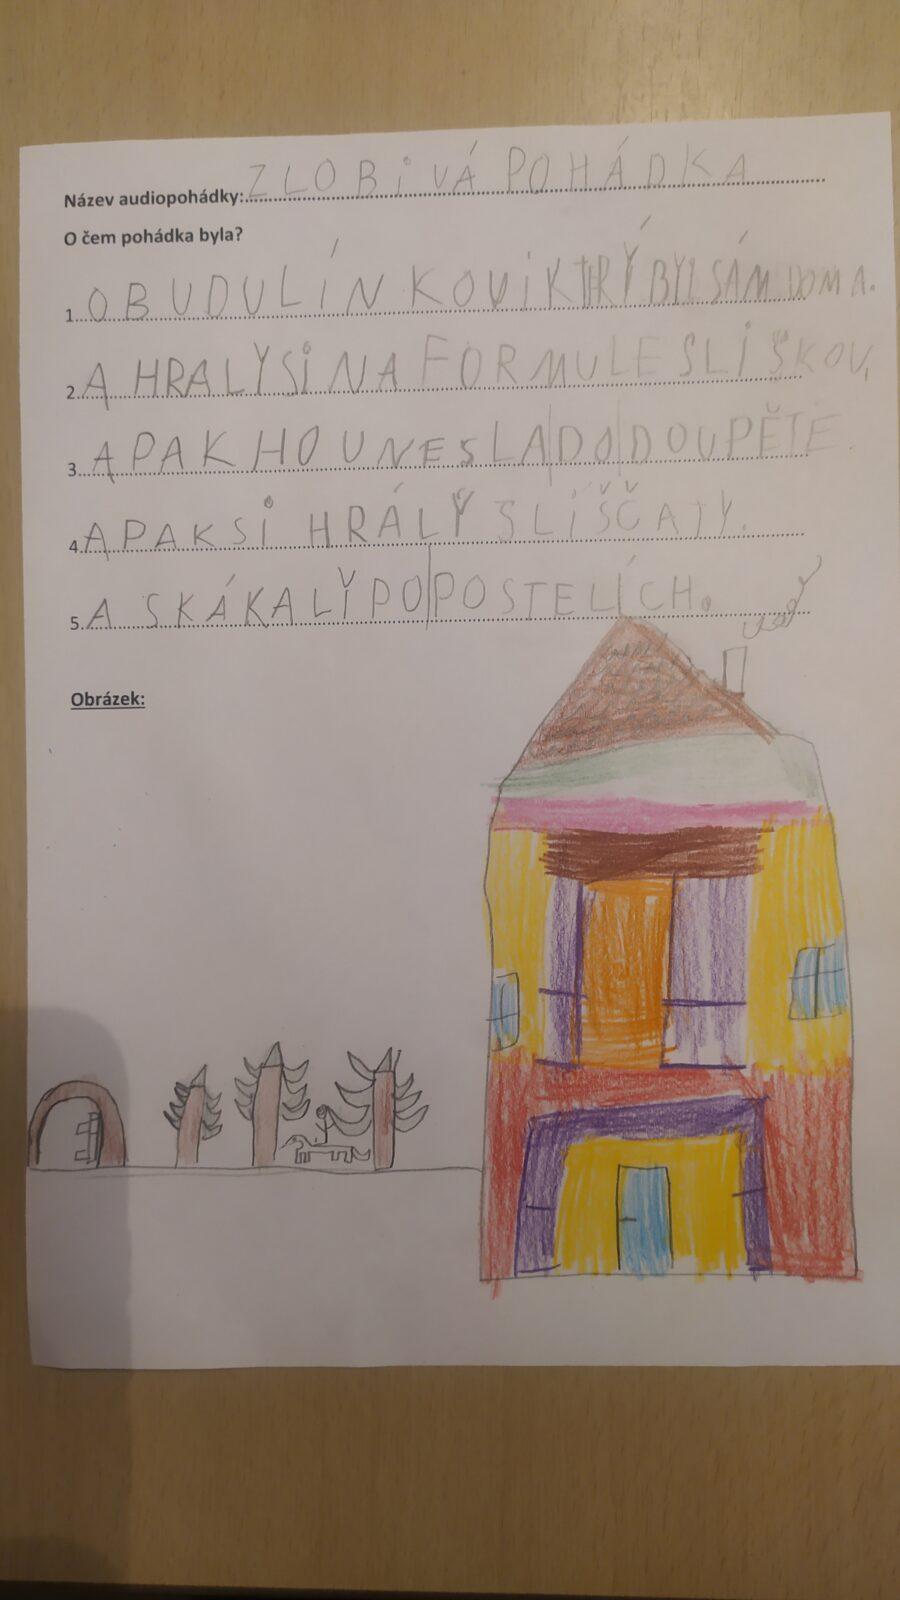 Název audiopohádky: ZLOBiVÁ POHÁDKA
O čem pohádka byla?
1. O BUDULÍNKOVi KTERÝ BYL SÁM DOMA.
2. A HRALY Si NA FORMULE S LiŠKOU,
3. A PAK HO UNESLA DO DOUPĚTE
4. A PAK Si HRÁLY S LÍŠČATY.
5. A SKÁKALY PO POSTELÍCH.
Obrázek: